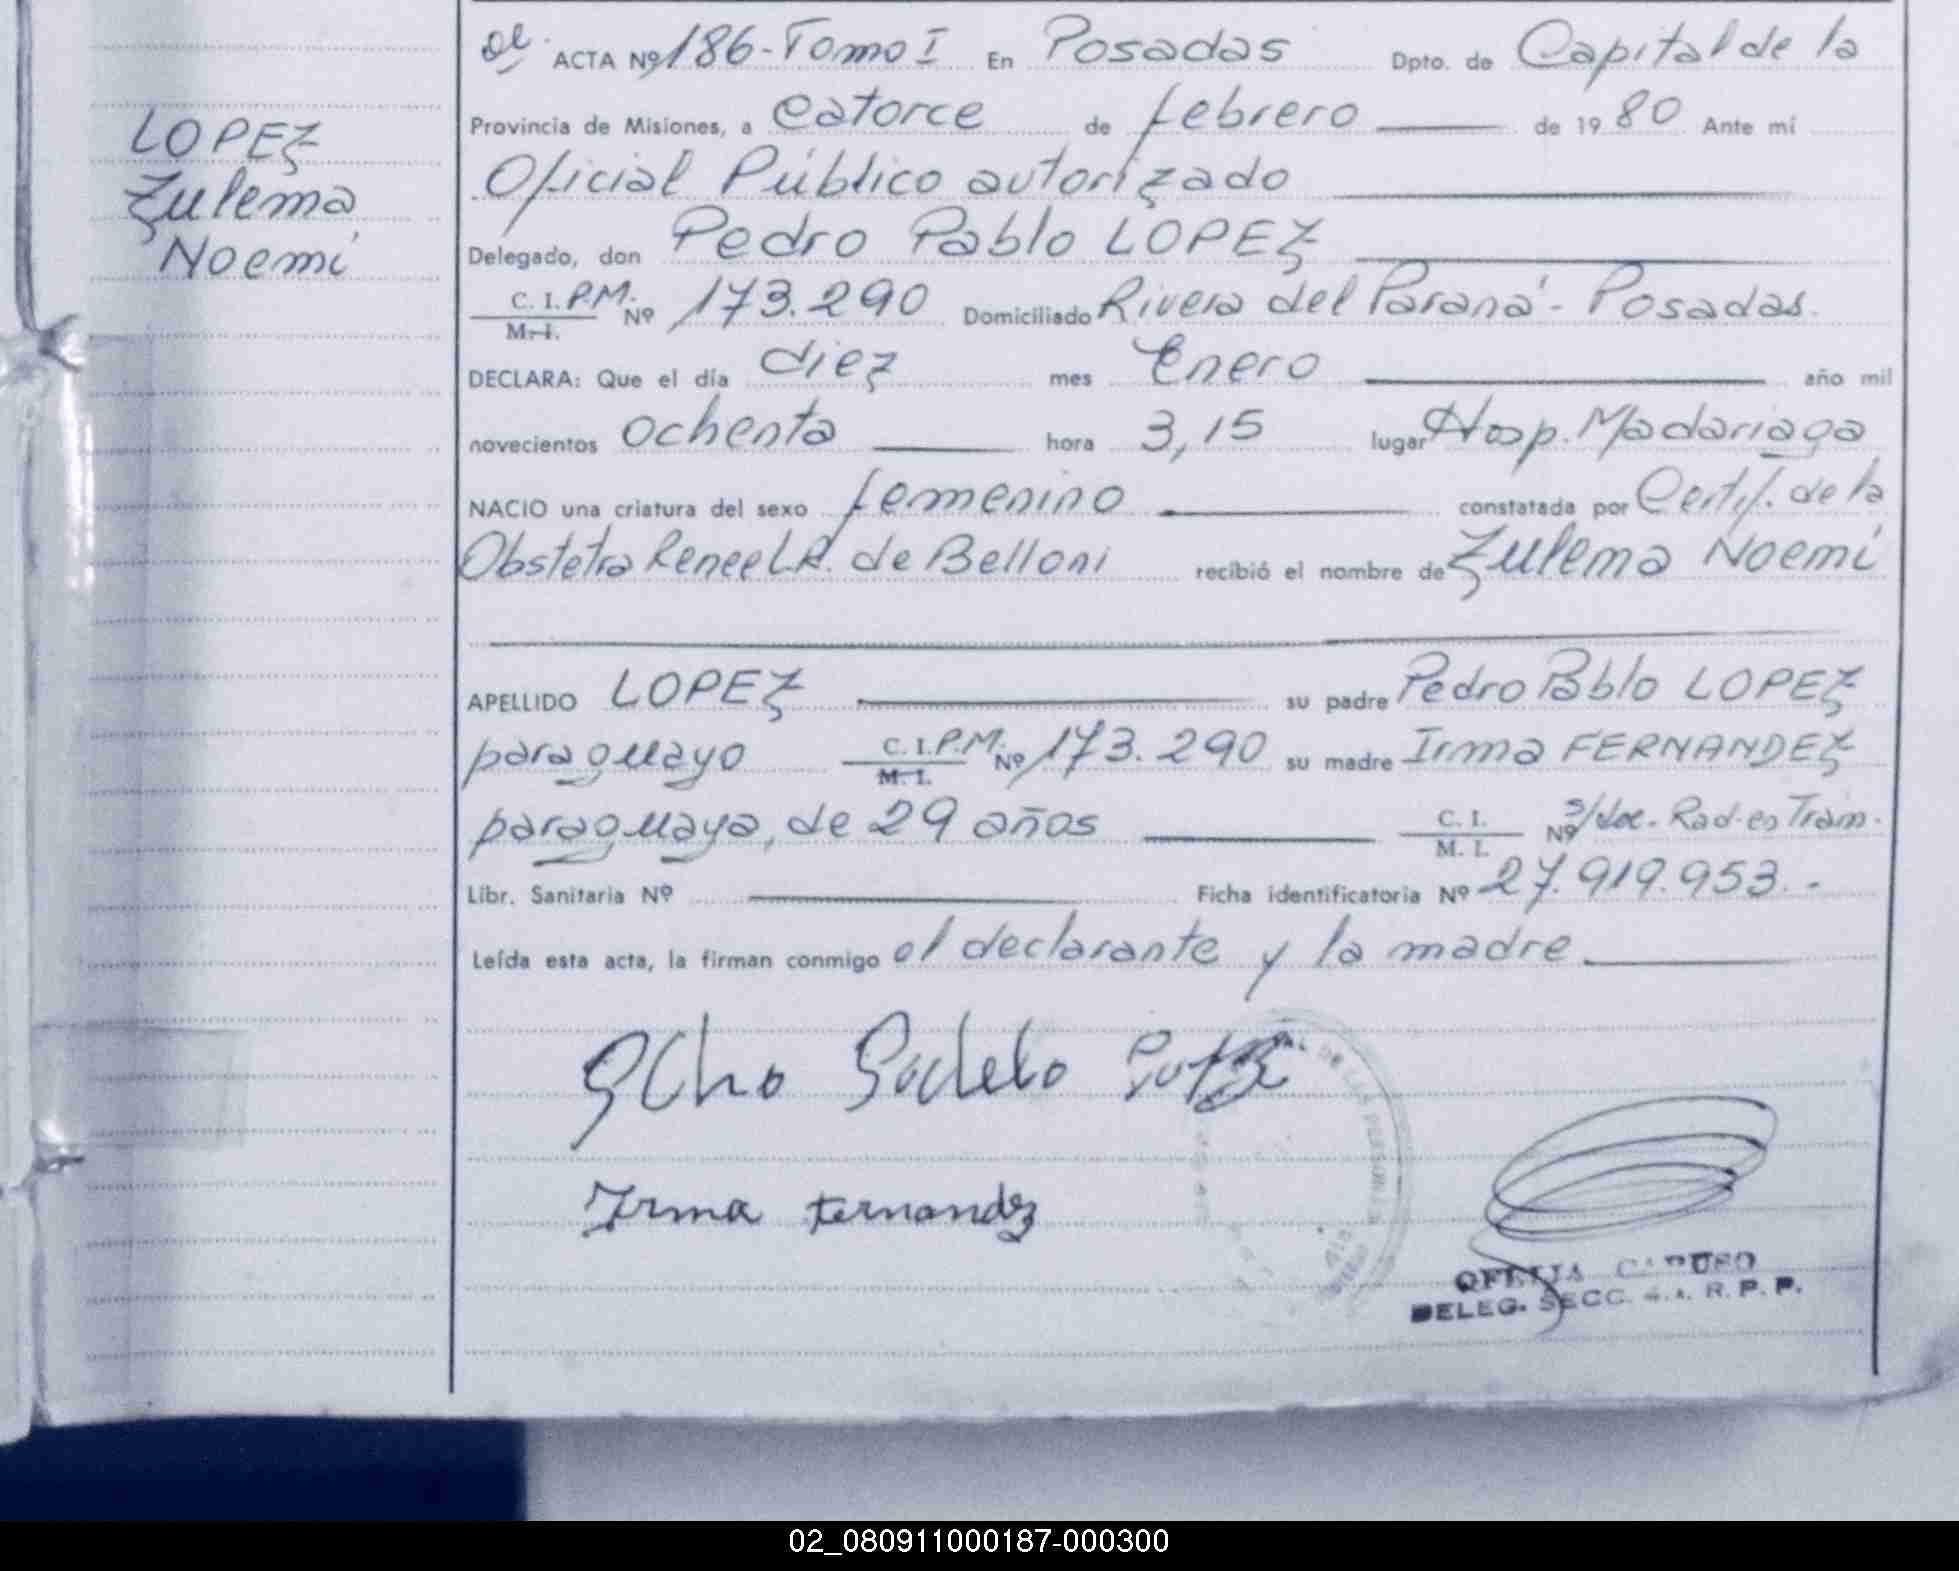 LOPEZ
Zulema
Noemí
ACTA Nº 186-Tomo I En Posadas Dpto. de Capital de la
Provincia de Misiones, a catorce de febrero de 1980 Ante mí
Oficial Público autorizado
Delegado, don Pedro Pablo LOPEZ
C. I. P.M. Nº 173.290 Domiciliado Rivera del Paraná - Posadas.
M. I.
DECLARA: Que el día diez mes Enero año mil
novecientos ochenta hora 3,15 lugar Hosp. Madariaga
NACIO una criatura del sexo femenino constatada por Certif. de la
Obstetra Renee L.R. de Belloni recibió el nombre de Zulema Noemí
APELLIDO LOPEZ su padre Pedro Pablo LOPEZ
paraguayo C. I. P.M. Nº 173.290 su madre Irma FERNANDEZ
M. I.
paraguaya, de 29 años C. I. Nº s/doc. Rad. en Trám.
M. I.
Libr. Sanitaria Nº Ficha identificatoria Nº 27.919.953.-
Leída esta acta, la firman conmigo el declarante y la madre
Irma Fernandez
OFELIA CARUSO
DELEG. SECC. R. P. P.
02_080911000187-000300